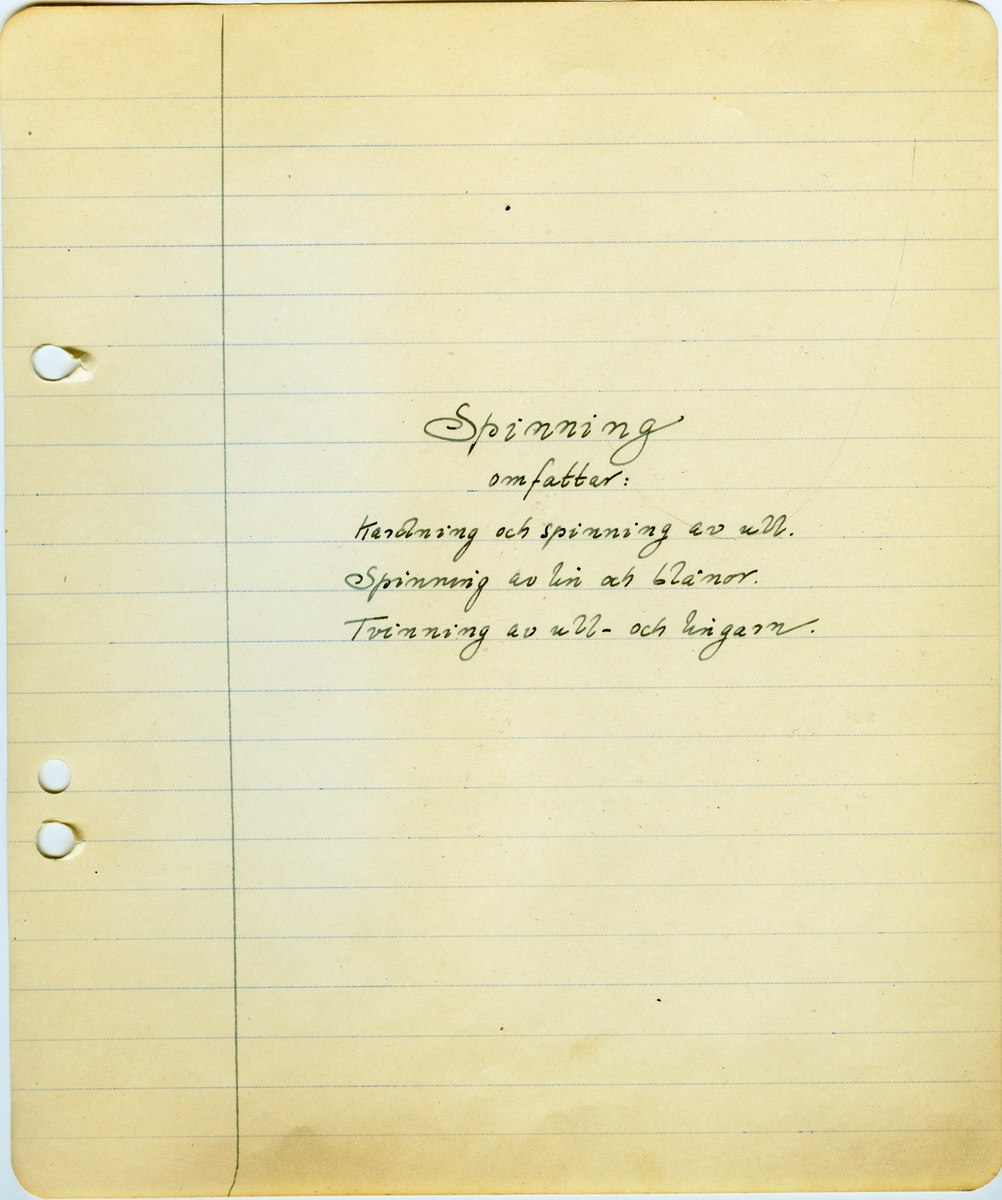 Spinning
omfattar:
Kardning och spinning av ull.
Spinning av lin och blånor.
Tvinning av ull- och lingarn.